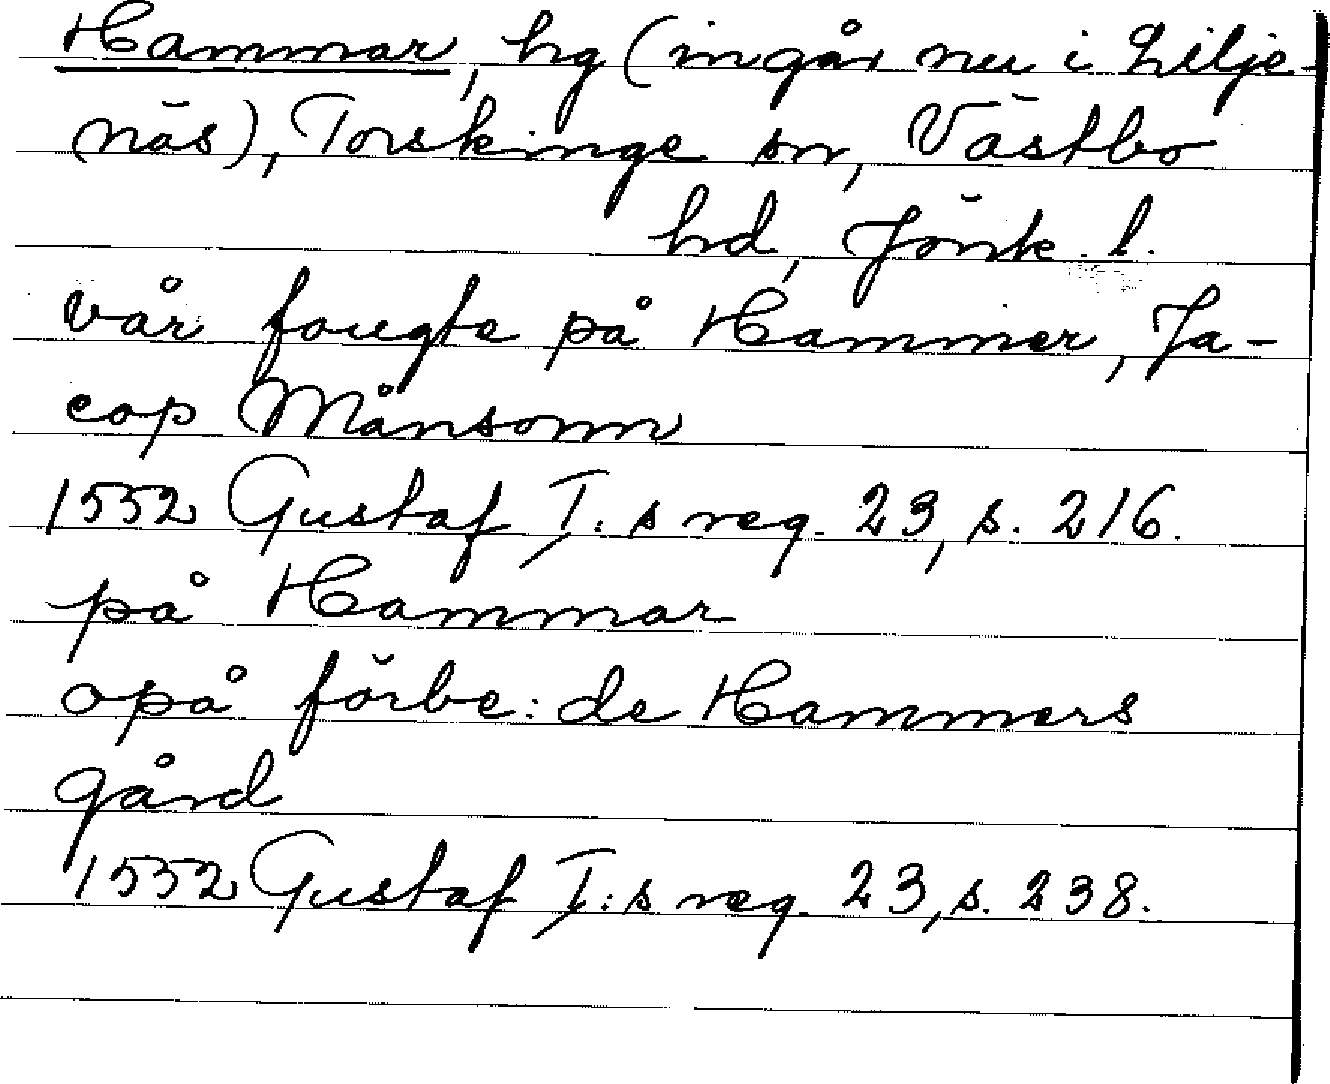 Hammar, hg (ingår nu i Lilje-
näs), Torskinge sn, Västbo
hd, Jönk. l.
vår fougte på Hammer, Ja-
cop Månsonn
1552 Gustaf I:s reg. 23, s. 216.
på Hammar
opå förbe:de Hammers
gård
1552 Gustaf I:s reg. 23, s. 238.